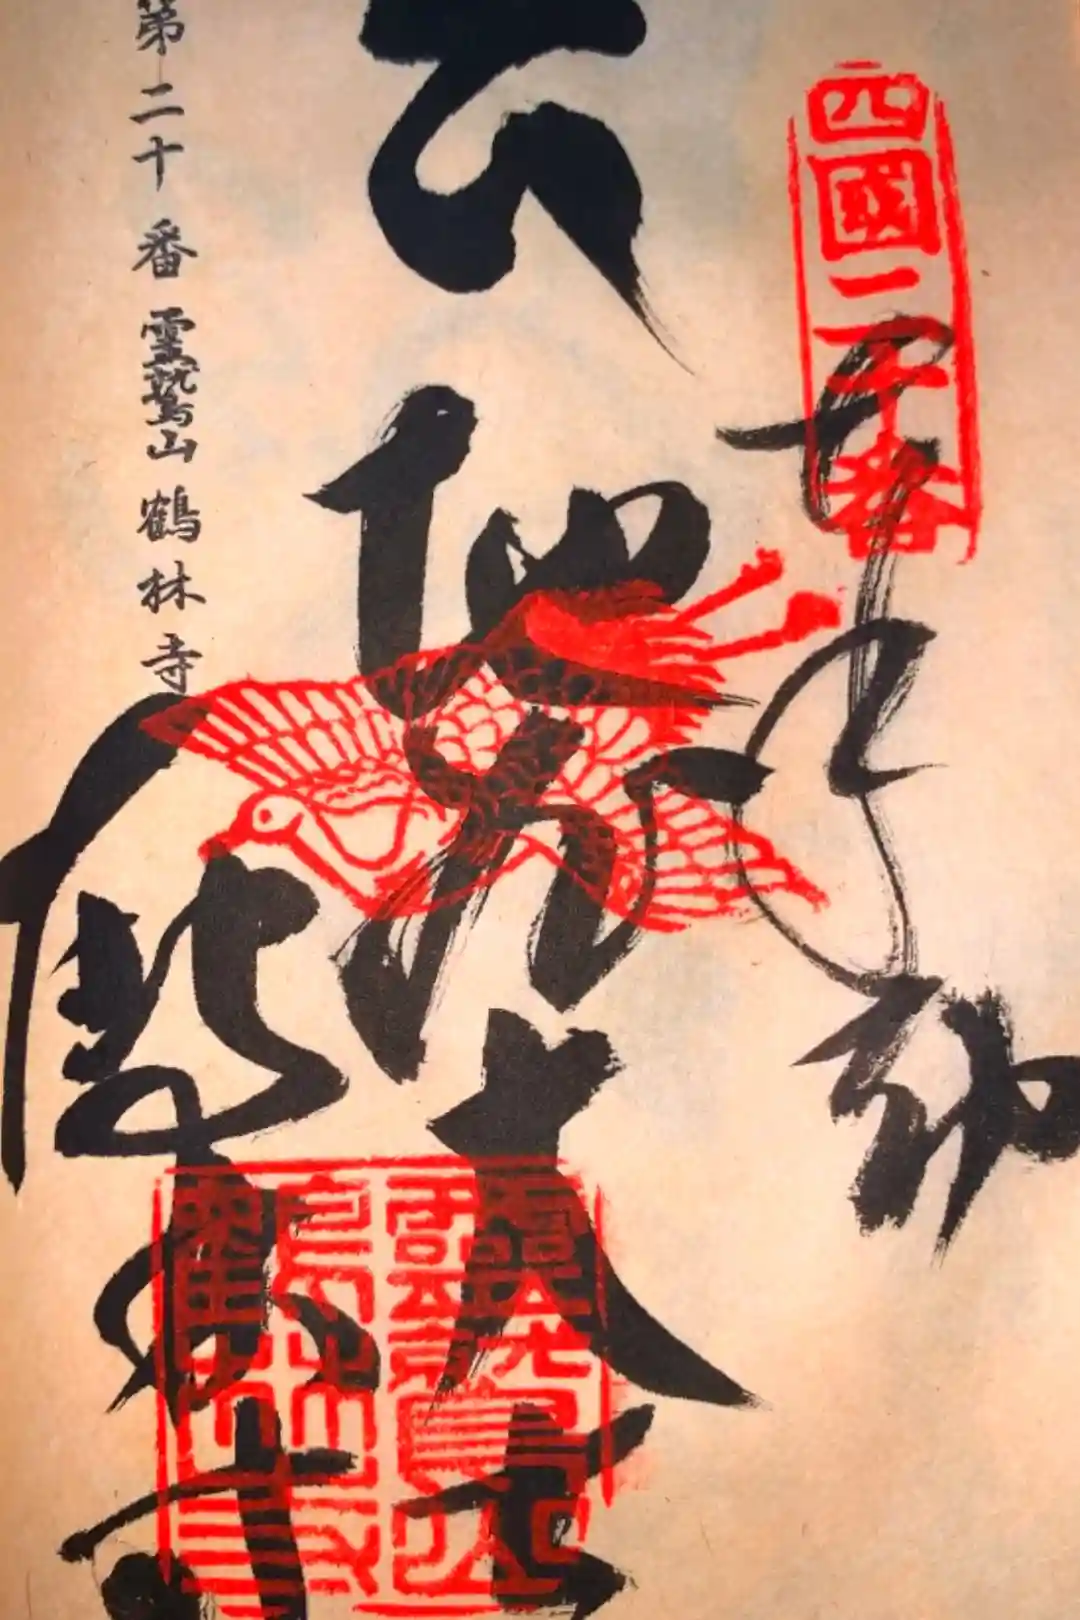 四國二十番
地蔵大士
靈鷲山
鶴林寺
鶴林寺
第二十番 靈鷲山 鶴林寺